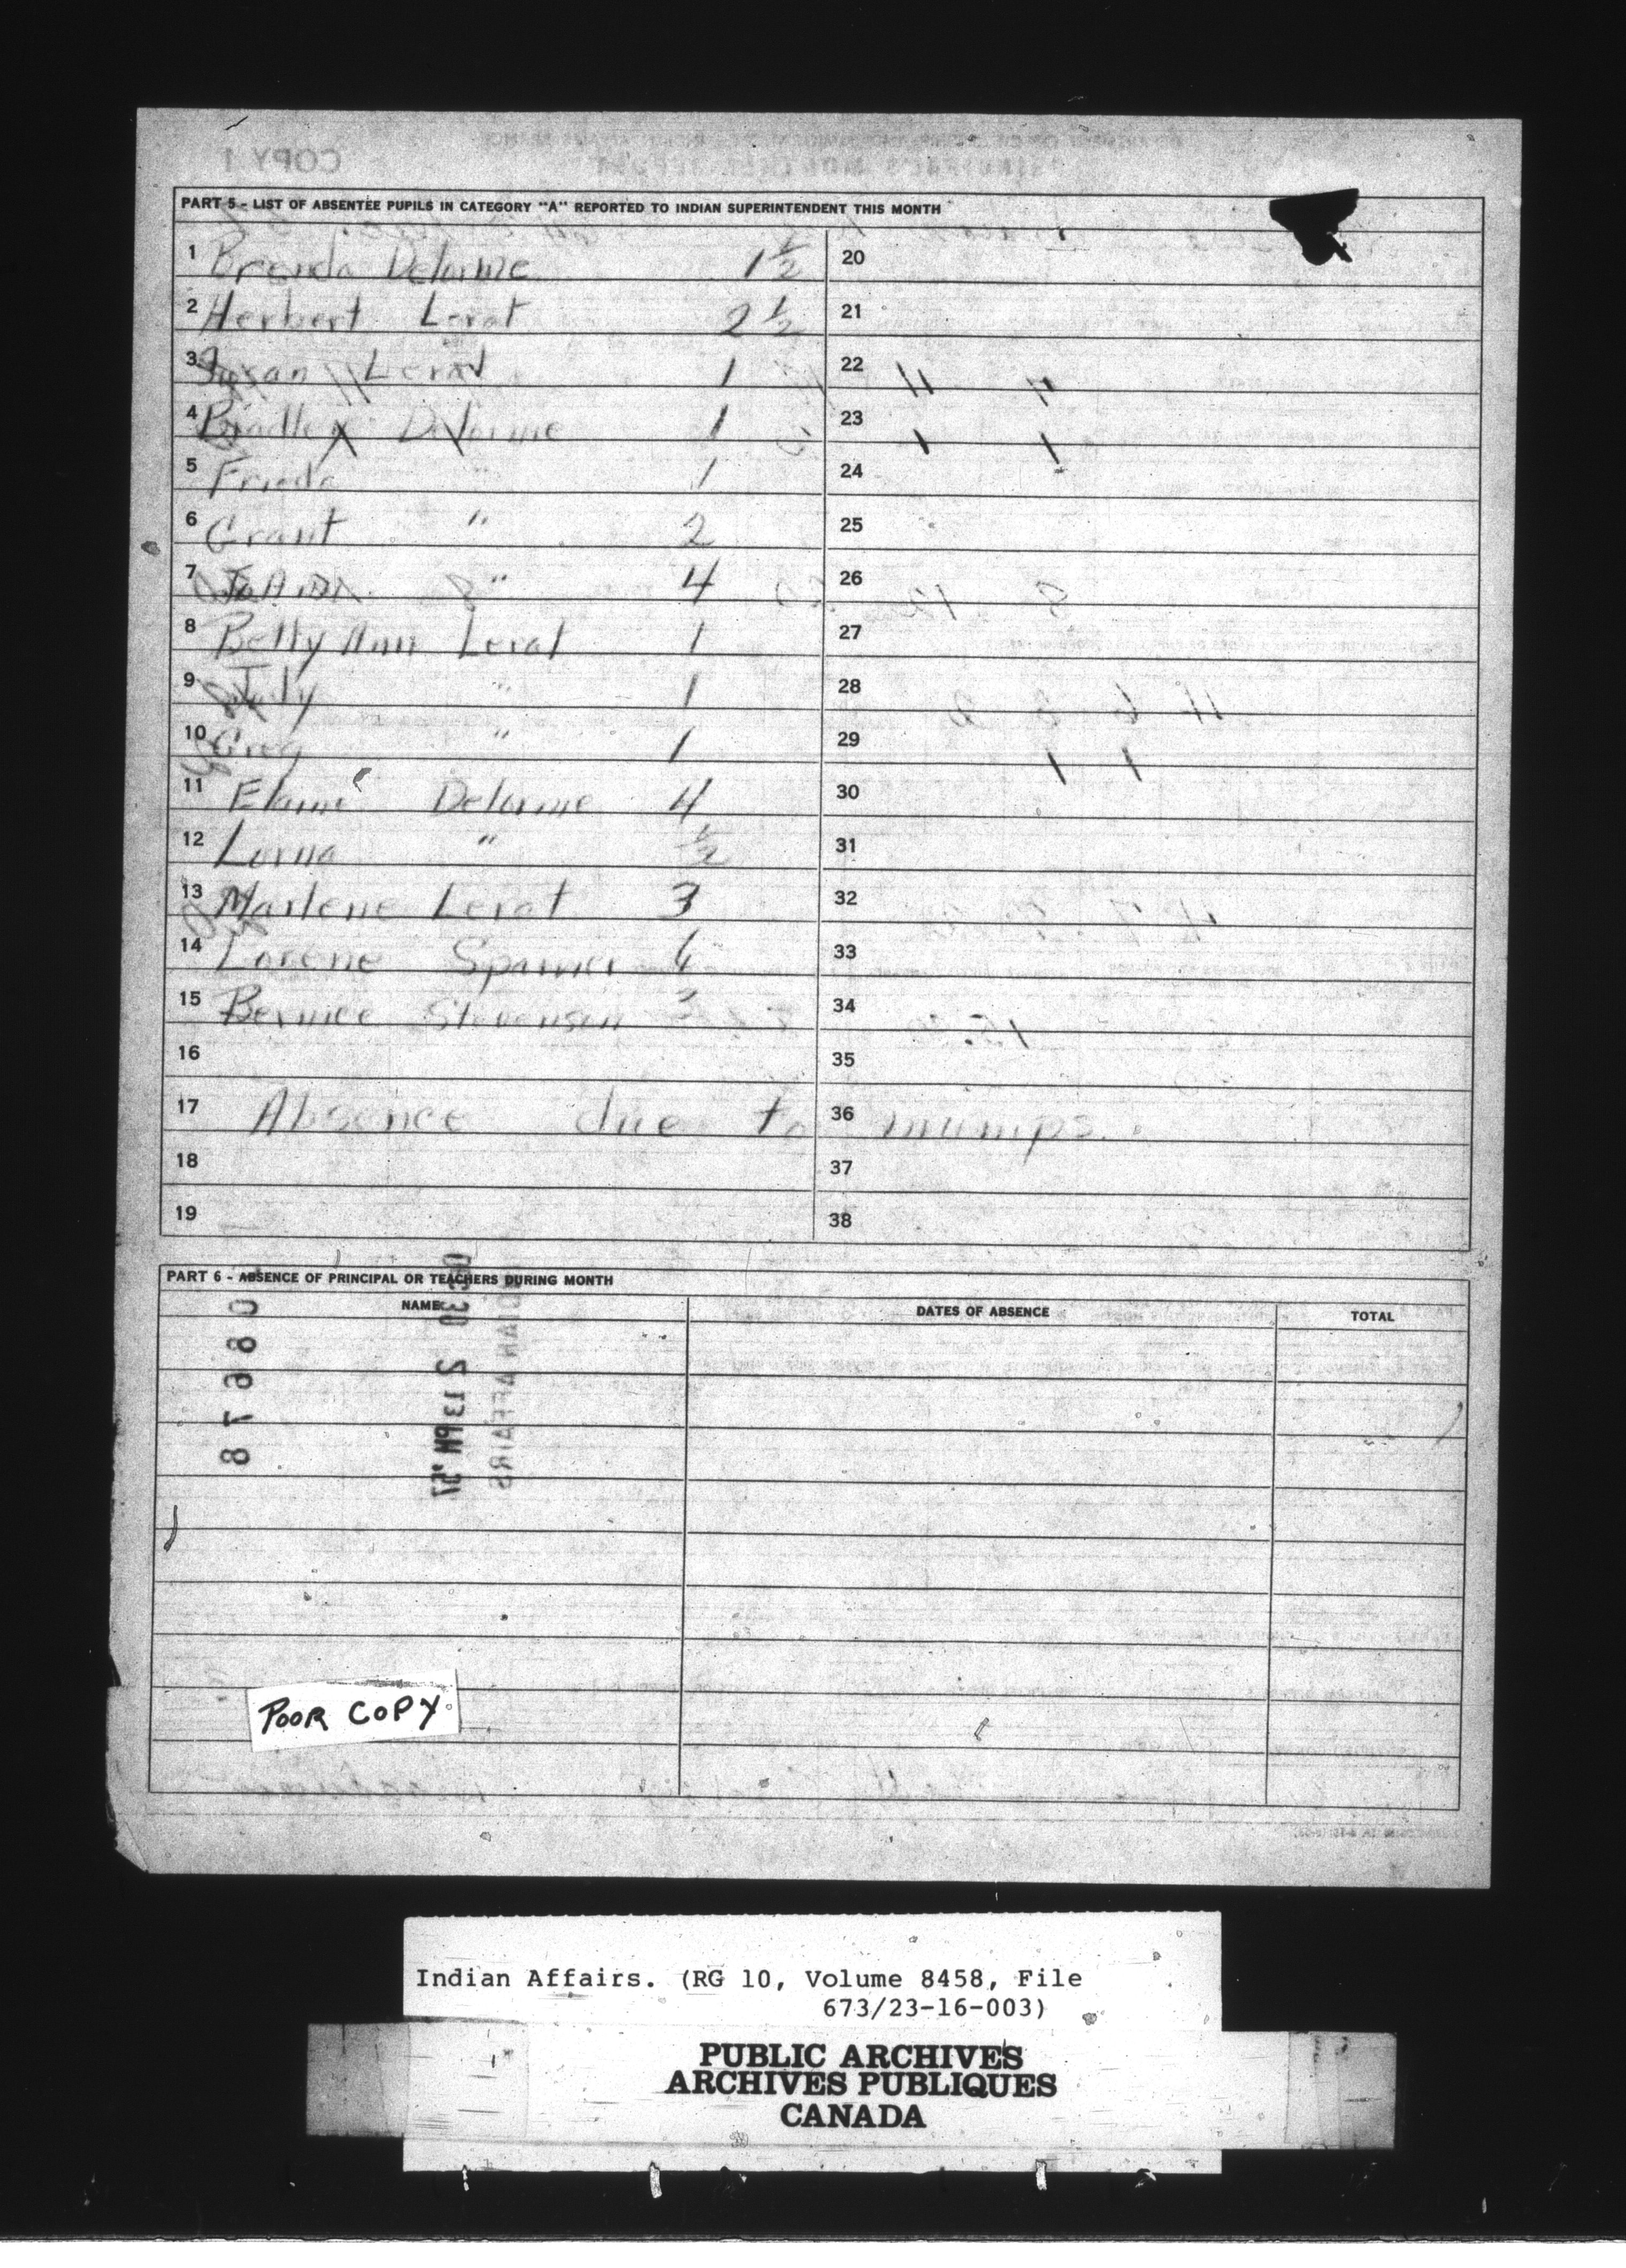 PART 5 - LIST OF ABSENTEE PUPILS IN CATEGORY "A" REPORTED TO INDIAN SUPERINTENDENT THIS MONTH
1 Brenda Delorme 1 1/2
2 Herbert Lerat 2 1/2
3 Susan Lerat 1
4 Bradley Delorme 1
5 Frieda " 1
6 Grant " 2
7 " 4
8 Betty Ann Lerat 1
9 Judy " 1
10 Greg " 1
11 Elaine Delorme 4
12 Lorna " 1/2
13 Marlene Lerat 3
14 Lorene Sparvier
15 Bernice Stevenson 3
16
17 Absence due to mumps.
18
19
20
21
22
23
24
25
26
27
28
29
30
31
32
33
34
35
36
37
38
PART 6 - ABSENCE OF PRINCIPAL OR TEACHERS DURING MONTH
NAME DATES OF ABSENCE TOTAL
POOR COPY
Indian Affairs. (RG 10, Volume 8458, File
673/23-16-003)
PUBLIC ARCHIVES
ARCHIVES PUBLIQUES
CANADA